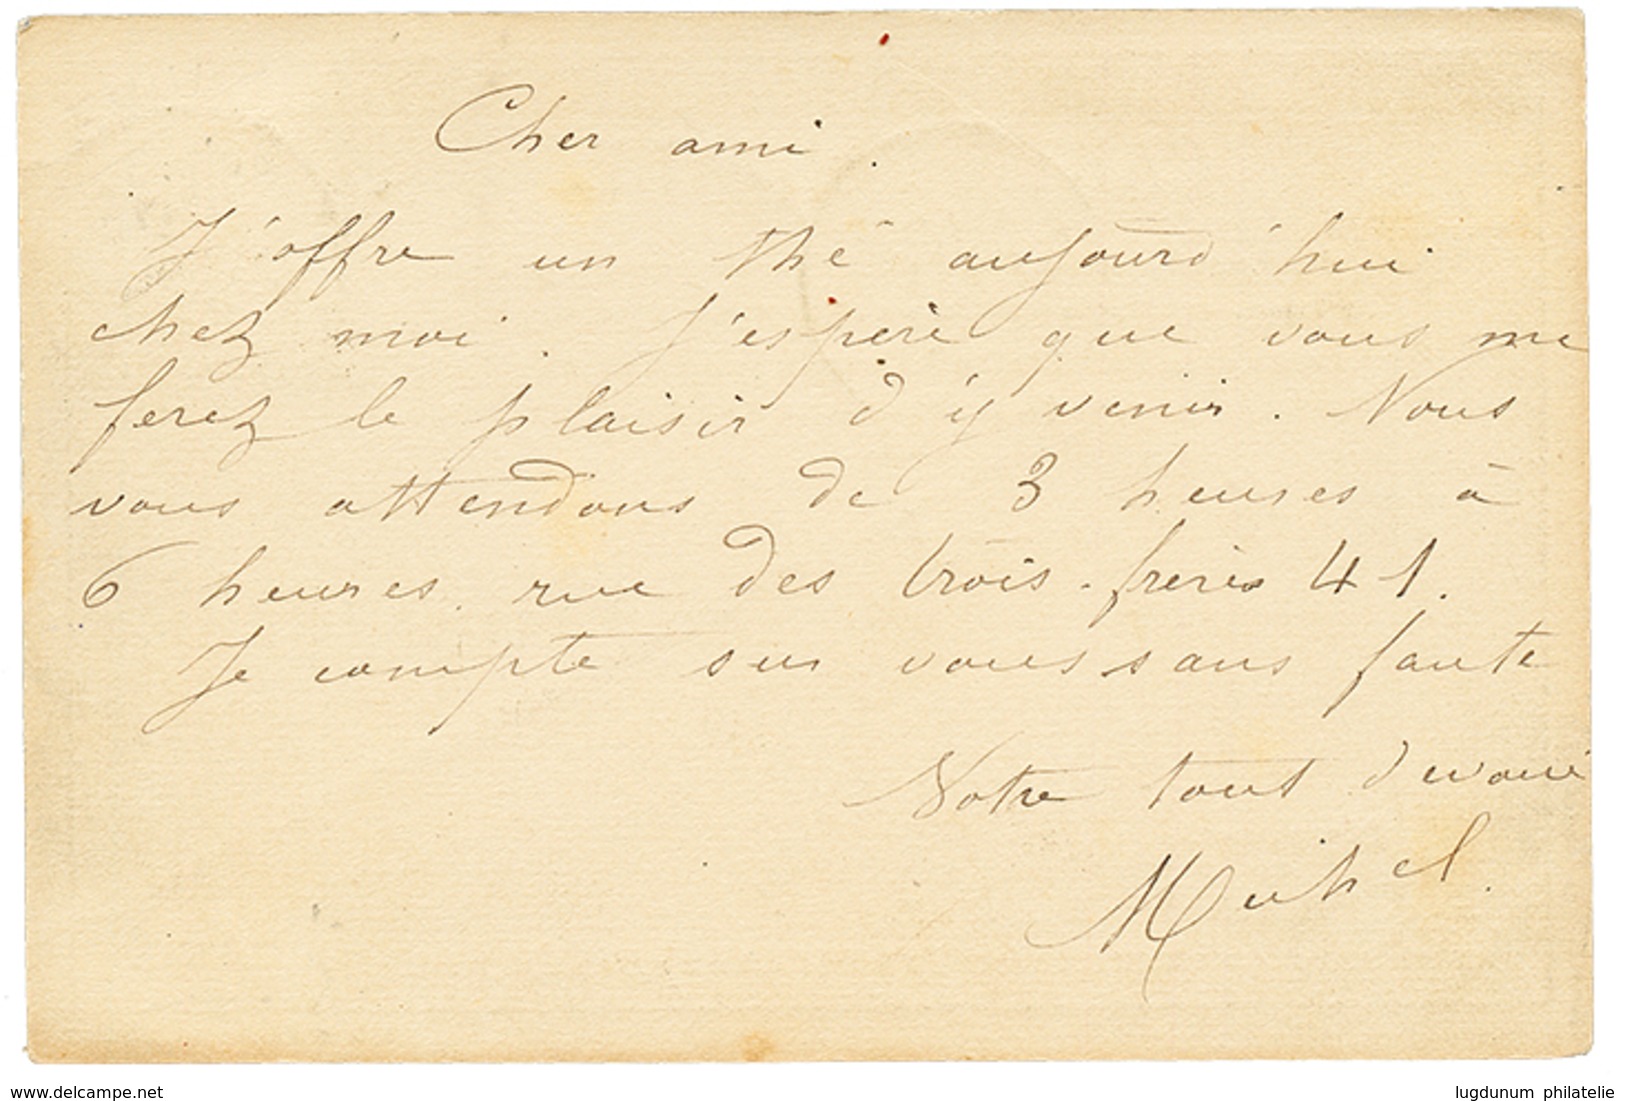 Cher ami.
J'offre un thé aujourd'hui
chez moi. J'espère que vous me
ferez le plaisir d'y venir. Nous
vous attendons de 3 heures à
6 heures. rue des trois-frères 41.
Je compte sur vous sans faute
Votre tout dévoué
Michel.
www.delcampe.net
lugdunum philatelie